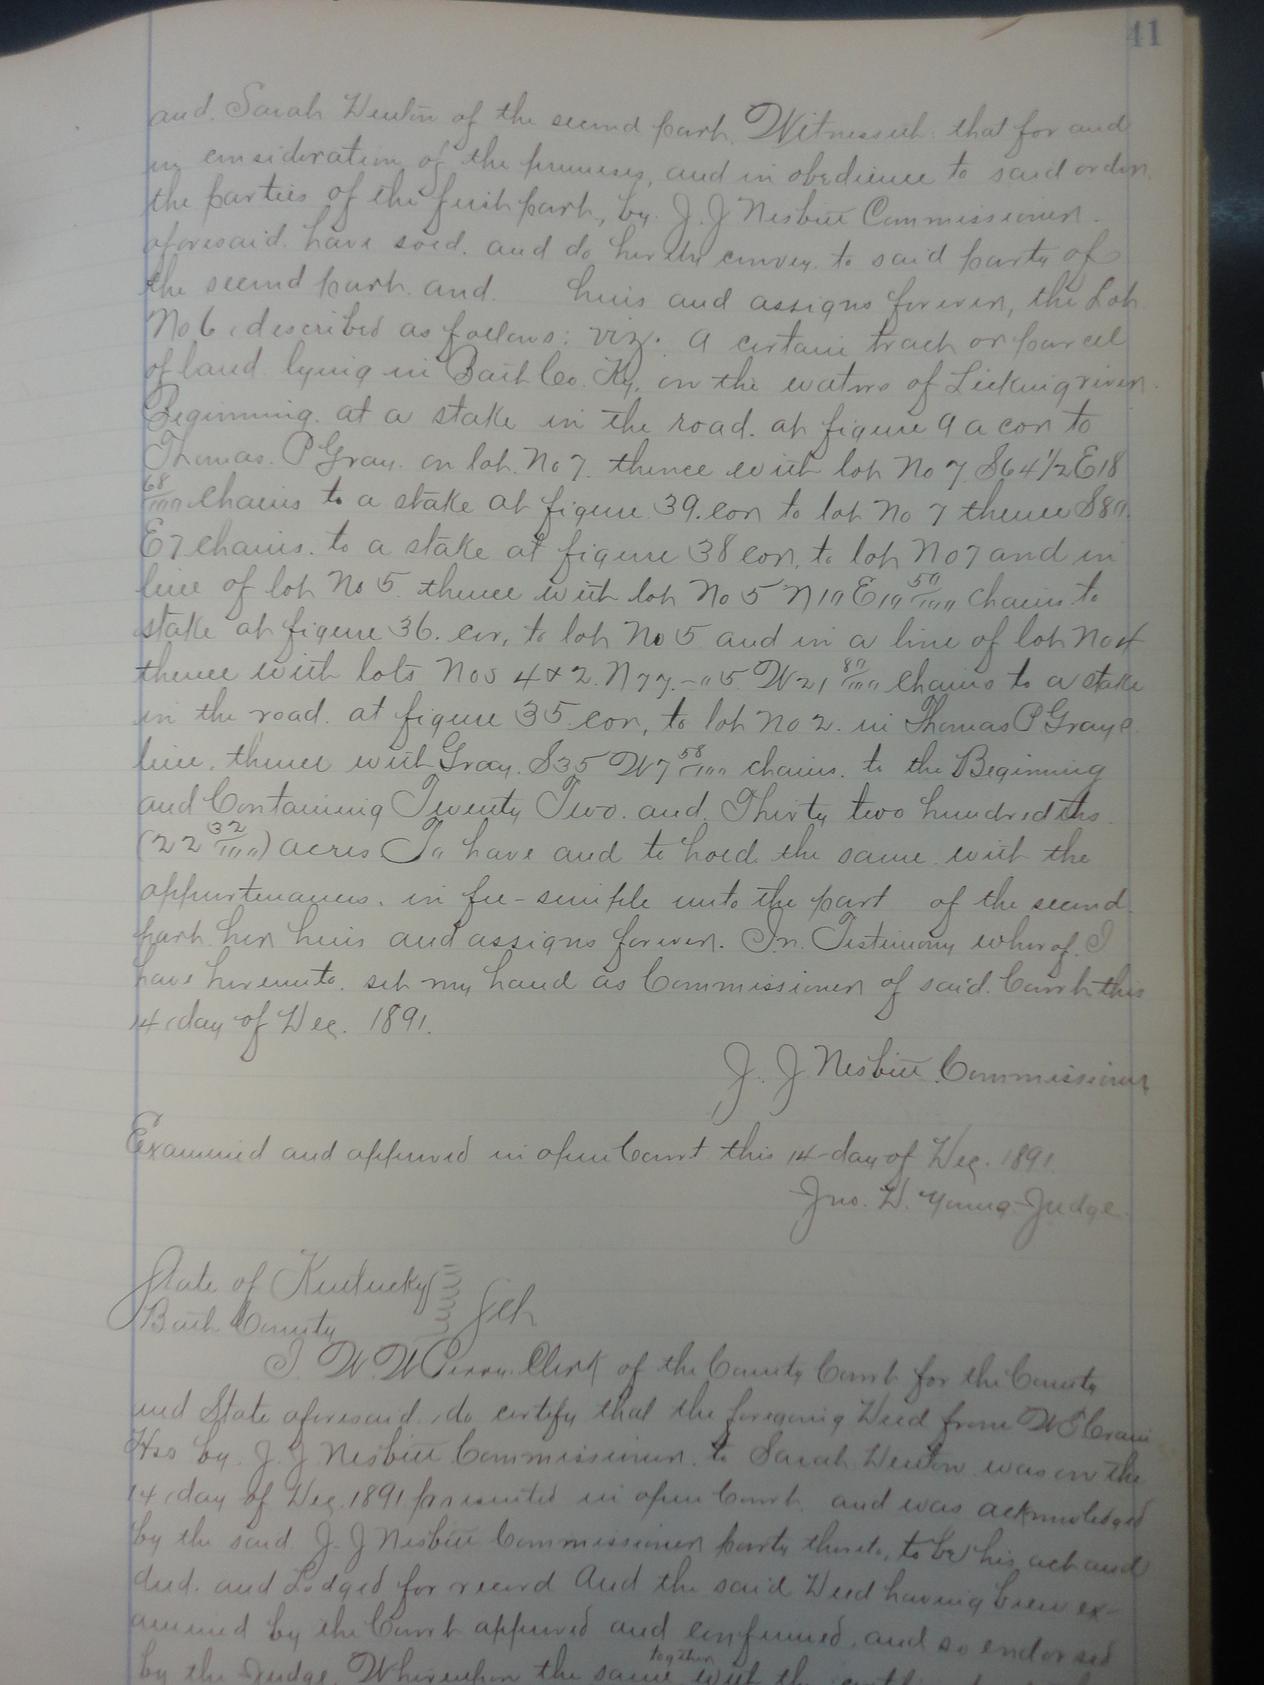 41
and. Sarah Denton of the second part. Witnesseth: that for and
in consideration of the premises, and in obedience to said order.
the parties of the first part, by J. J Nesbitt Commissioner.
aforesaid. have sold. and do hereby convey. to said party of
the second part. and. heirs and assigns forever, the Lot
No 6, described as follows: viz. A certain tract or parcel
of land lying in Bath Co. Ky, on the waters of Licking river.
Beginning. at a stake in the road. at figure 9 a cor to
Thomas. P Gray. on lot. No 7. thence with lot No 7. S64 1/2 E18
68/100 chains to a stake at figure 39. cor to lot No 7 thence S80.
E7 chains. to a stake at figure 38 cor, to lot No 7 and in
line of lot No 5. thence with lot No 5 N10 E10 50/100 chains to
stake at figure 36. cor, to lot No 5 and in a line of lot No 4
thence with lots Nos 4 & 2. N77.-05 W21 80/100 chains to a stake
in the road. at figure 35. cor, to lot No 2. in Thomas P Grays
line. thence with Gray. S35 W7 58/100 chains. to the Beginning
and Containing Twenty Two. and. Thirty two hundredths.
(22 32/100) acres To have and to hold the same with the
appurtenances. in fee-simple unto the part of the second
part her heirs and assigns forever. In. Testimony wherof. I
have hereunto. set my hand as Commissioner of said. Court this
14 day of Dec. 1891.
J. J Nesbitt Commissioner
Examined and approved in open Court this 14-day of Dec. 1891.
Jno. D. Young Judge
State of Kentucky
Bath County Sct
I W. W Perry. Clerk of the County Court for the County
and State aforesaid. do certify that the foregoing Deed from W E Crain
Hrs by. J. J Nesbitt Commissioner. to Sarah. Denton was on the
14 day of Dec. 1891 presented in open Court. and was acknowledged
by the said. J. J Nesbitt Commissioner party thereto, to be his act and
deed. and Lodged for record And the said Deed having been ex-
amined by the Court approved and confirmed, and so endorsed
by the Judge. Whereupon the same together with the